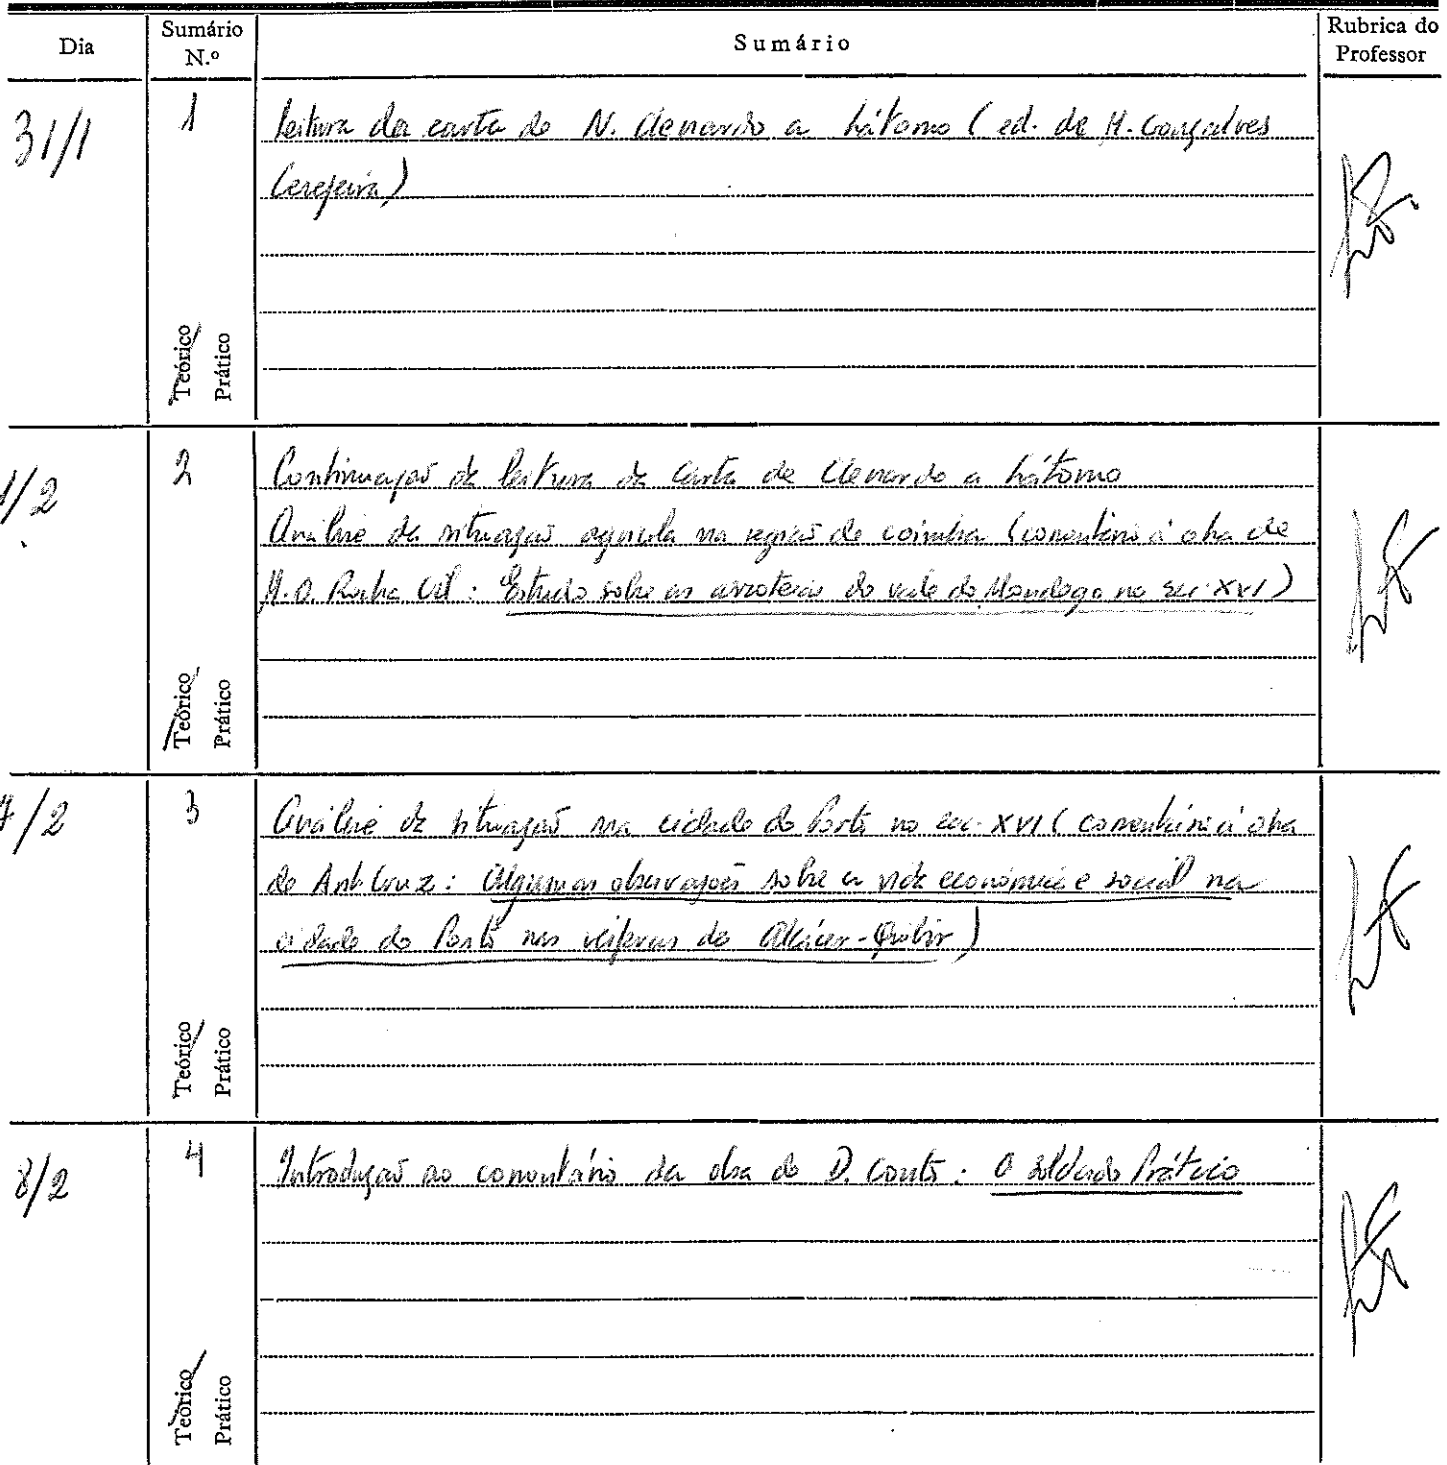 Dia
Sumário N.º
Sumário
Rubrica do Professor
31/1
1
Leitura da carta de N. Clenardo a Látomo (ed. de M. Gonçalves
Cerejeira)
Teórico
Prático
1/2
2
Continuação da leitura da carta de Clenardo a Látomo
Análise da situação agrícola na região de Coimbra (comentário à obra de
M. O. Rocha Gil: Estudo sobre as arroteias do vale do Mondego no sec. XVI)
Teórico
Prático
7/2
3
Análise da situação na cidade do Porto no sec. XVI (comentário à obra
de Ant. Cruz: Algumas observações sobre a vida económica e social na
cidade do Porto nas vésperas de Alcácer-Quibir)
Teórico
Prático
8/2
4
Introdução ao comentário da obra de D. Couto: O Soldado Prático
Teórico
Prático